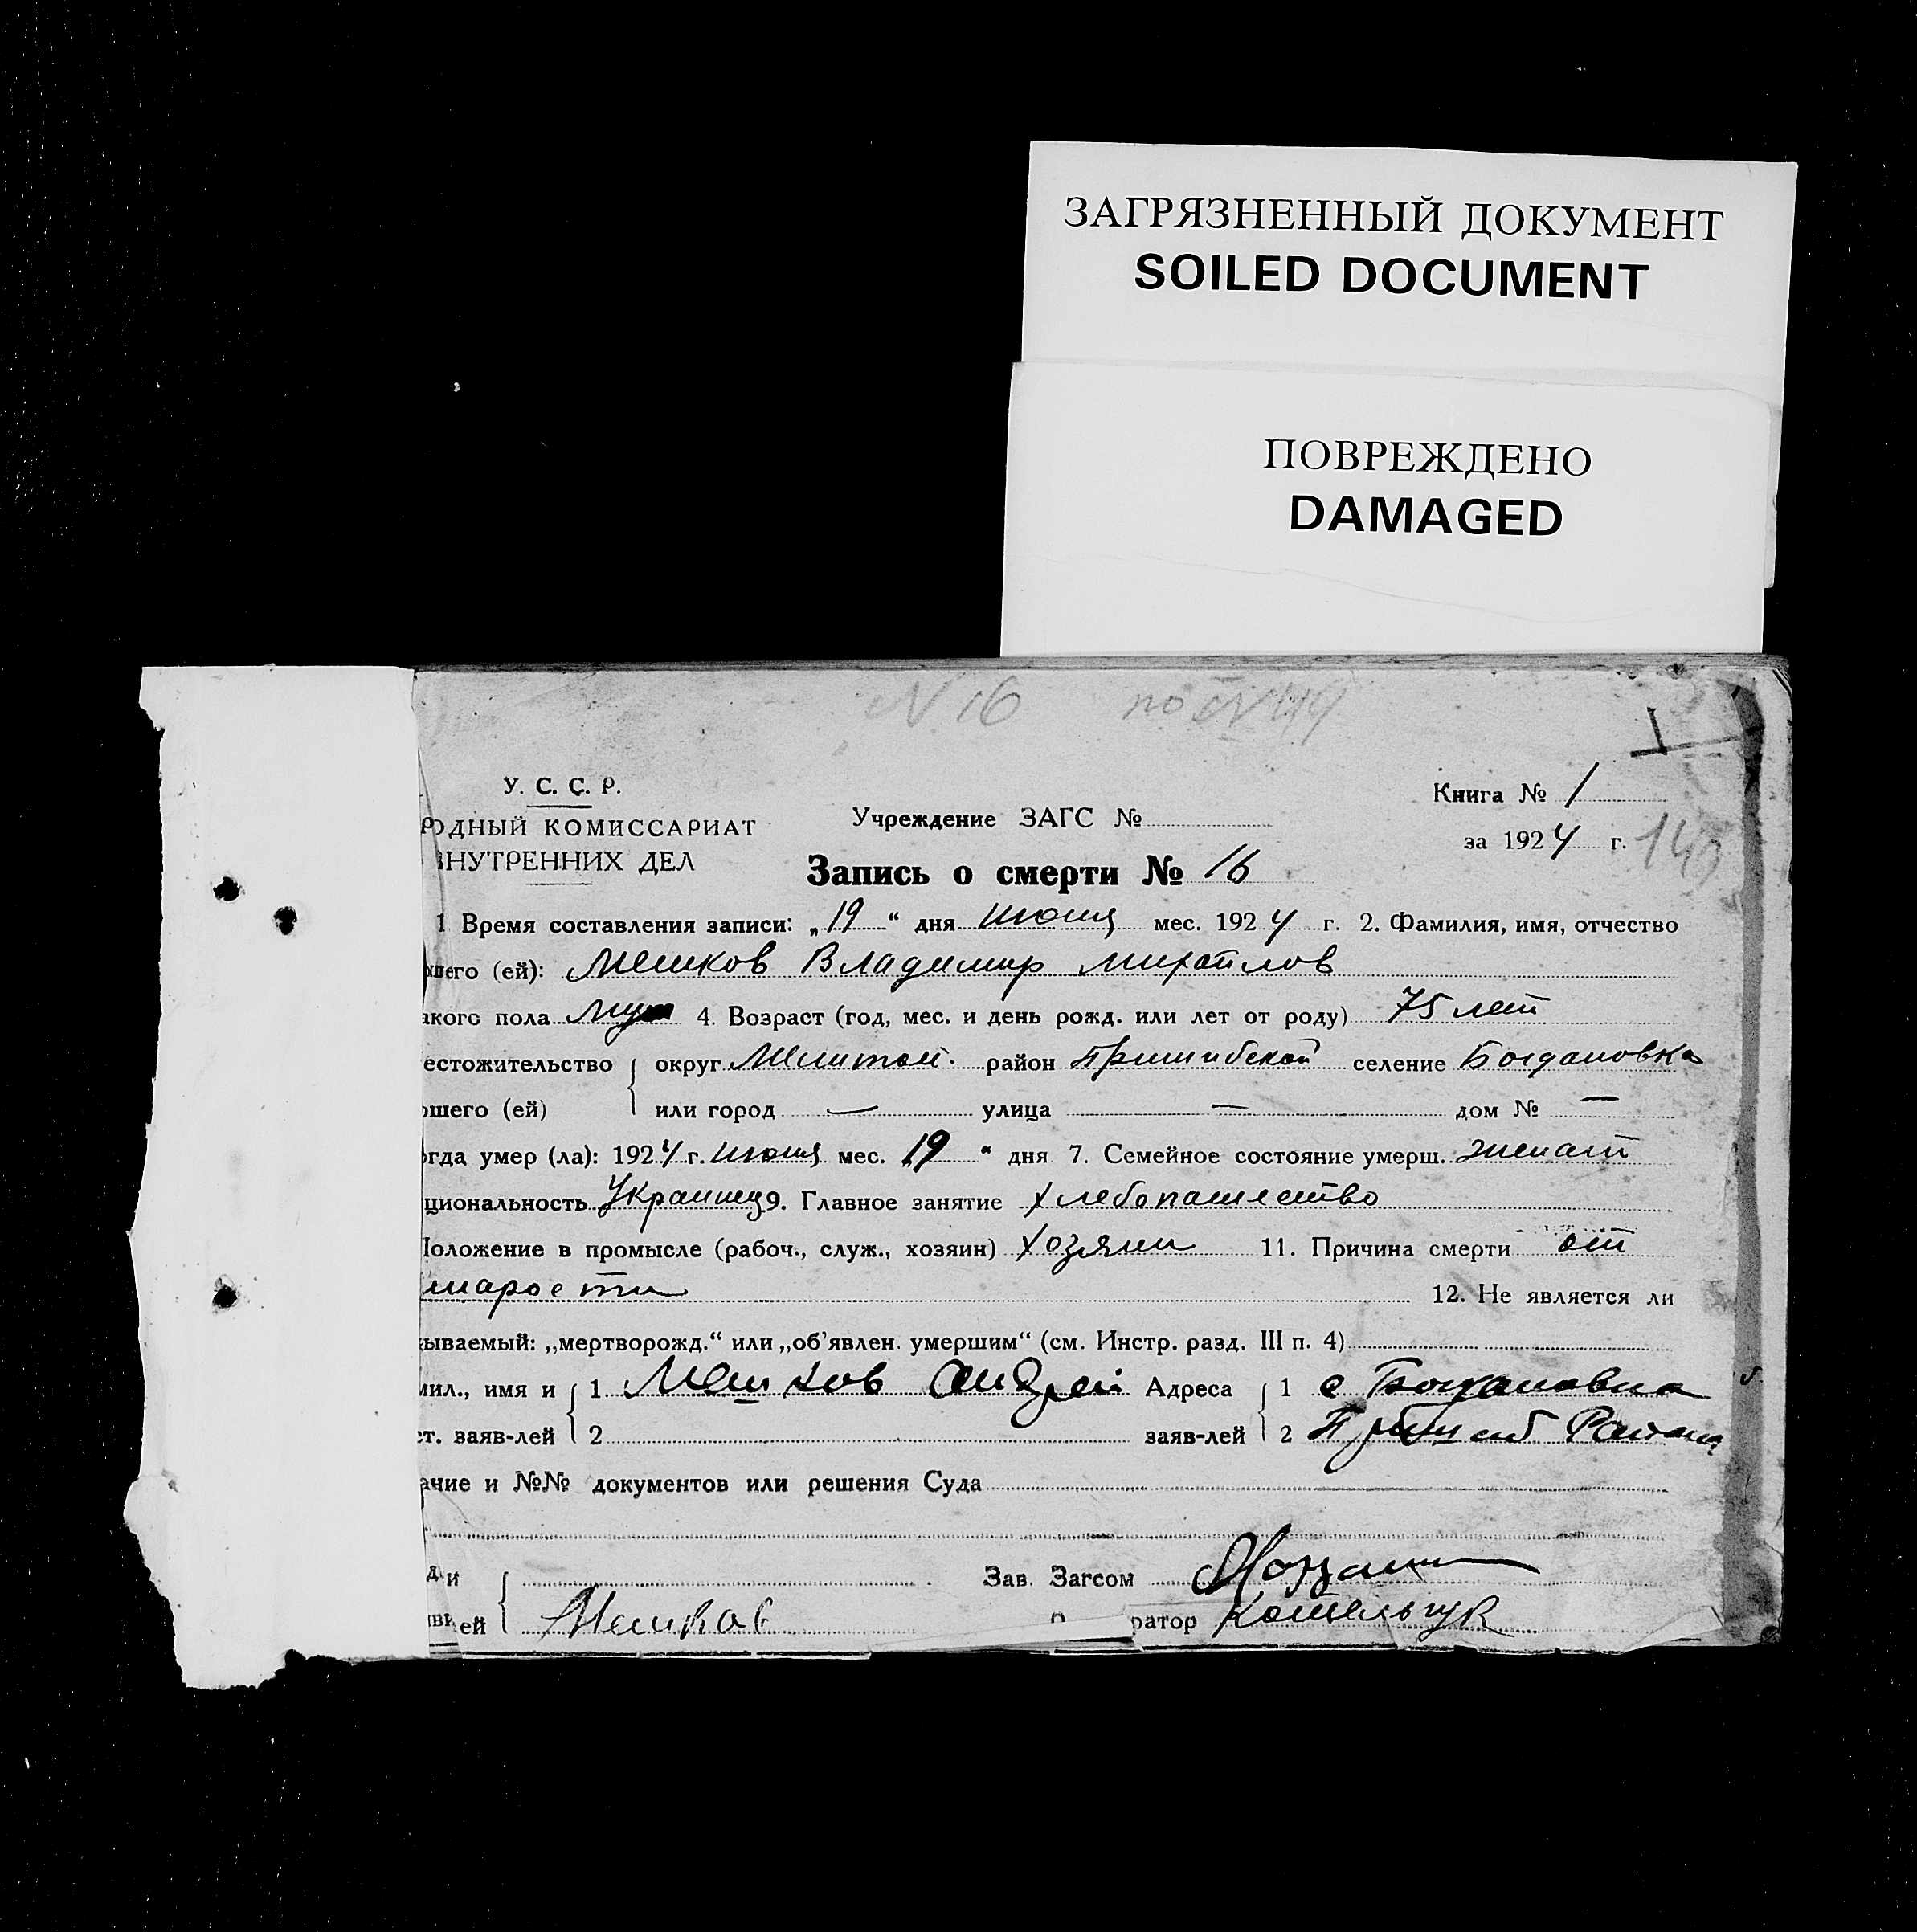 ЗАГРЯЗНЕННЫЙ ДОКУМЕНТ
SOILED DOCUMENT
ПОВРЕЖДЕНО
DAMAGED
N 16 по N 119
1
У. С. С. Р.
РОДНЫЙ КОМИССАРИАТ
ВНУТРЕННИХ ДЕЛ
Учреждение ЗАГС №
Книга № 1
за 1924 г. 140
Запись о смерти № 16
1 Время составления записи: „19“ дня июня мес. 1924 г. 2. Фамилия, имя, отчество
ошего (ей): Мешков Владимир Михайлов
акого пола муж 4. Возраст (год, мес. и день рожд. или лет от роду) 75 лет
естожительство округ Мелитоп. район Пришибской селение Богдановка
ошего (ей) или город — улица — дом № —
огда умер (ла): 1924 г. июня мес. „19“ дня 7. Семейное состояние умерш. женат
циональность Украинец 9. Главное занятие хлебопашество
Положение в промысле (рабоч., служ., хозяин) хозяин 11. Причина смерти от
старости 12. Не является ли
ываемый: „мертворожд.“ или „об’явлен. умершим“ (см. Инстр. разд. III п. 4)
мил., имя и 1 Мешков Андрей Адреса 1 с Богдановка
ст. заяв-лей 2 заяв-лей 2 Пришиб Района
ание и №№ документов или решения Суда
д и Зав. Загсом
ей Мешков ратор